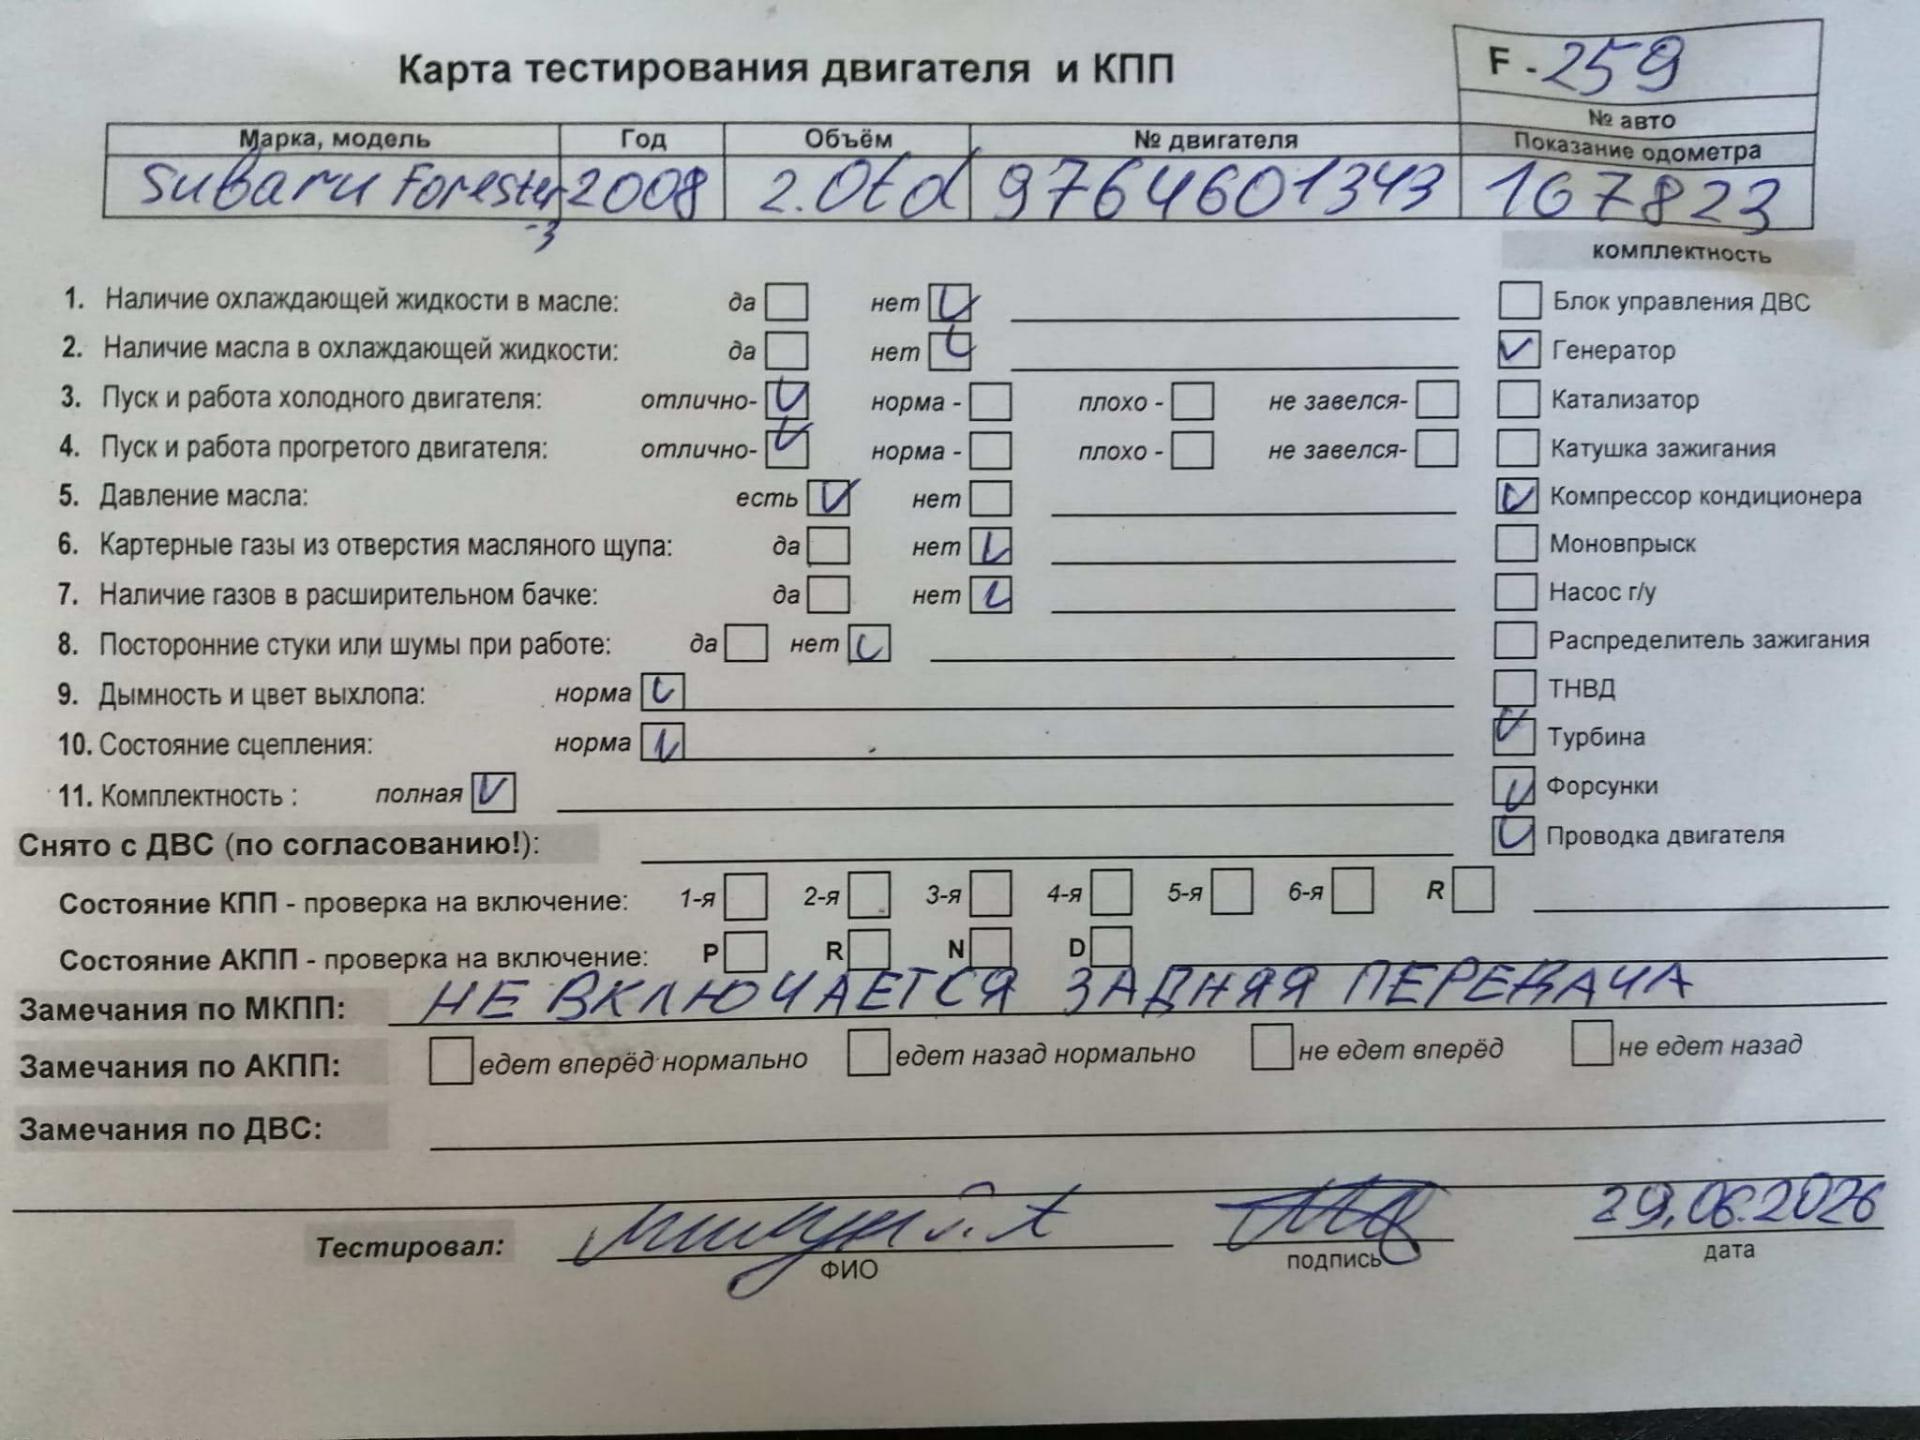 Карта тестирования двигателя и КПП
F - 259
№ авто
Марка, модель Год Объём № двигателя Показание одометра
Subaru Forester-3 2008 2.0td 9764601343 167823
комплектность
1. Наличие охлаждающей жидкости в масле: да нет
2. Наличие масла в охлаждающей жидкости: да нет
3. Пуск и работа холодного двигателя: отлично- норма - плохо - не завелся-
4. Пуск и работа прогретого двигателя: отлично- норма - плохо - не завелся-
5. Давление масла: есть нет
6. Картерные газы из отверстия масляного щупа: да нет
7. Наличие газов в расширительном бачке: да нет
8. Посторонние стуки или шумы при работе: да нет
9. Дымность и цвет выхлопа: норма
10. Состояние сцепления: норма
11. Комплектность : полная
Блок управления ДВС
Генератор
Катализатор
Катушка зажигания
Компрессор кондиционера
Моновпрыск
Насос г/у
Распределитель зажигания
ТНВД
Турбина
Форсунки
Проводка двигателя
Снято с ДВС (по согласованию!):
Состояние КПП - проверка на включение: 1-я 2-я 3-я 4-я 5-я 6-я R
Состояние АКПП - проверка на включение: P R N D
Замечания по МКПП: НЕ ВКЛЮЧАЕТСЯ ЗАДНЯЯ ПЕРЕДАЧА
Замечания по АКПП: едет вперёд нормально едет назад нормально не едет вперёд не едет назад
Замечания по ДВС:
Тестировал: 29.06.2026
ФИО подпись дата